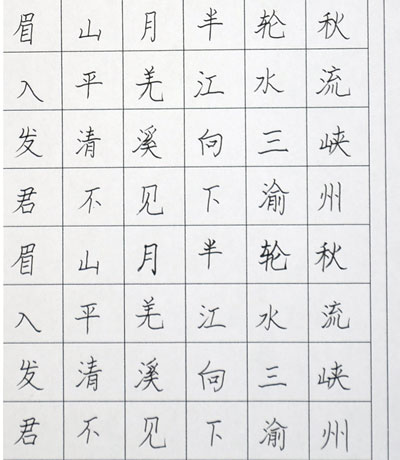 眉山月半轮秋
入平羌江水流
发清溪向三峡
君不见下渝州
眉山月半轮秋
入平羌江水流
发清溪向三峡
君不见下渝州